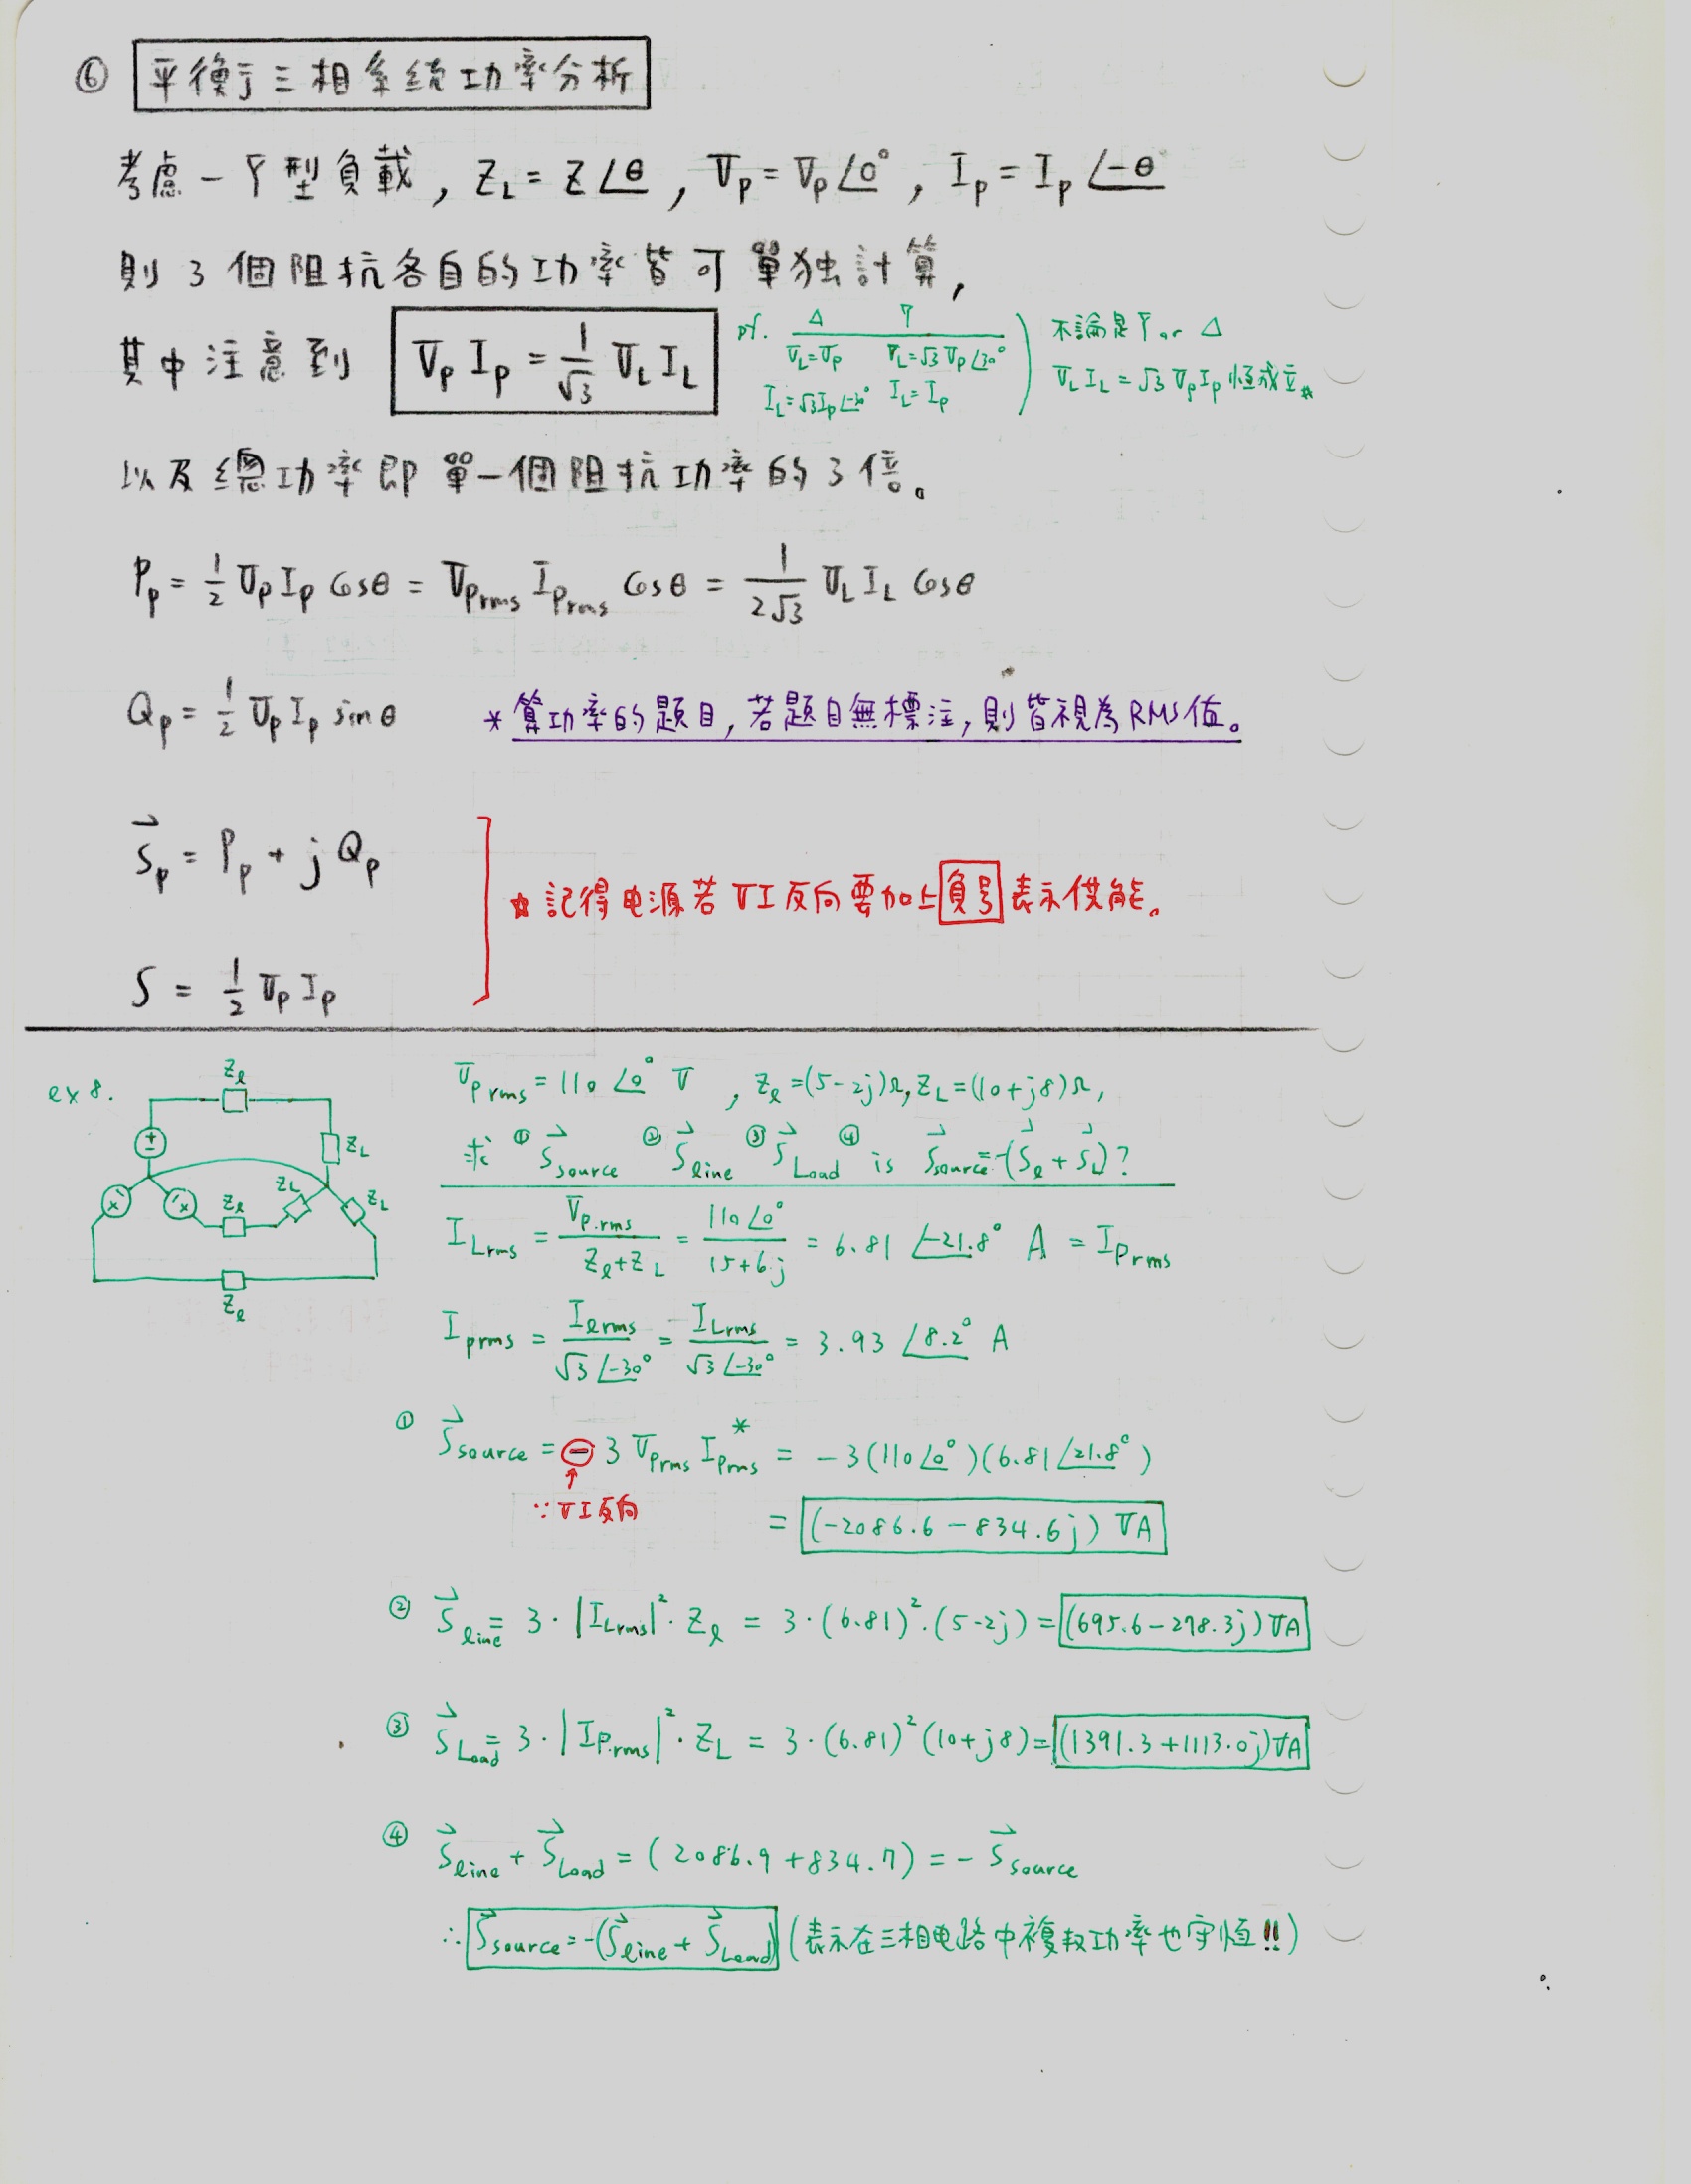 ⑥ 平衡Y三相系統功率分析
考慮一Y型負載, Z_L = Z∠θ, V_p = V_p∠0°, I_p = I_p∠-θ
則3個阻抗各自的功率皆可單独計算,
其中注意到 V_p I_p = 1/√3 V_L I_L
pf. Δ Y
V_L=V_p V_L=√3 V_p∠30°
I_L=√3I_p∠-30° I_L=I_p
不論是Y or Δ
V_L I_L = √3 V_p I_p 恒成立
以及總功率即單一個阻抗功率的3倍。
P_p = 1/2 V_p I_p cosθ = V_Prms I_Prms cosθ = 1/(2√3) V_L I_L cosθ
Q_p = 1/2 V_p I_p sinθ
*算功率的題目,若題目無標注,則皆視為RMS值。
S⃗_p = P_p + j Q_p
☆記得电源若VI反向要加上負号表示供能。
S = 1/2 V_p I_p
ex 8.
Z_ℓ
Z_L
Z_L
Z_ℓ
Z_L
Z_ℓ
V_p rms = 110∠0° V , Z_ℓ=(5-2j)Ω, Z_L=(10+j8)Ω,
求 ① S⃗_source ② S⃗_line ③ S⃗_Load ④ is S⃗_source=-(S⃗_ℓ+S⃗_L)?
I_Lrms = V_p.rms/(Z_ℓ+Z_L) = 110∠0°/(15+6j) = 6.81∠-21.8° A = I_Prms
I_prms = I_ℓrms/(√3∠-30°) = I_Lrms/(√3∠-30°) = 3.93∠8.2° A
① S⃗_source = -3 V_Prms I_Prms* = -3(110∠0°)(6.81∠21.8°)
∵VI反向
= (-2086.6-834.6j) VA
② S⃗_line = 3·|I_Lrms|²·Z_ℓ = 3·(6.81)²·(5-2j) = (695.6-278.3j)VA
③ S⃗_Load = 3·|I_P.rms|²·Z_L = 3·(6.81)²(10+j8) = (1391.3+1113.0j)VA
④ S⃗_line + S⃗_Load = (2086.9+834.7) = -S⃗_source
∴ S⃗_source=-(S⃗_line+S⃗_Load) (表示在三相电路中複数功率也守恒!!)